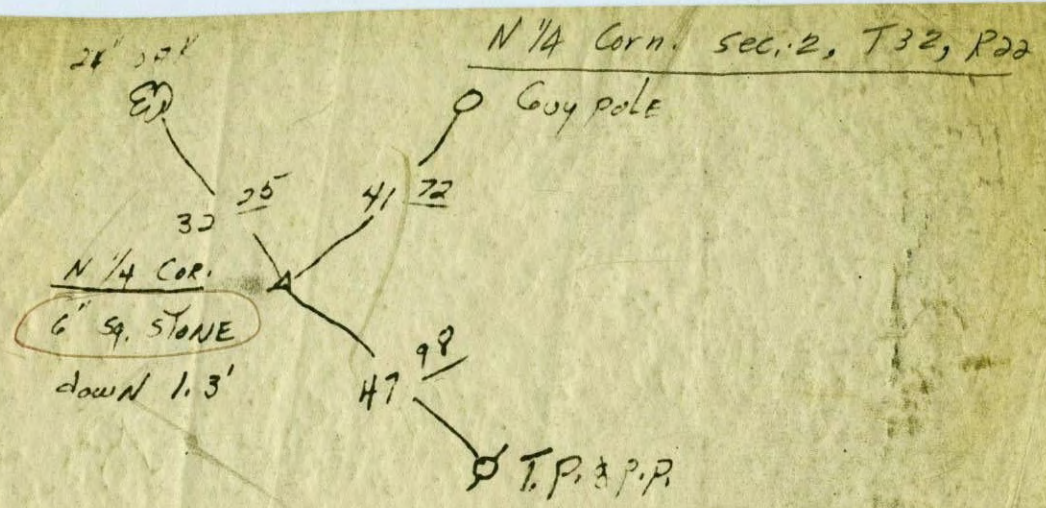 N 1/4 Corn. sec. 2, T32, R22
Guy pole
32 25
41 72
N 1/4 COR.
6" sq. STONE
down 1.3'
47 98
T.P. & P.P.